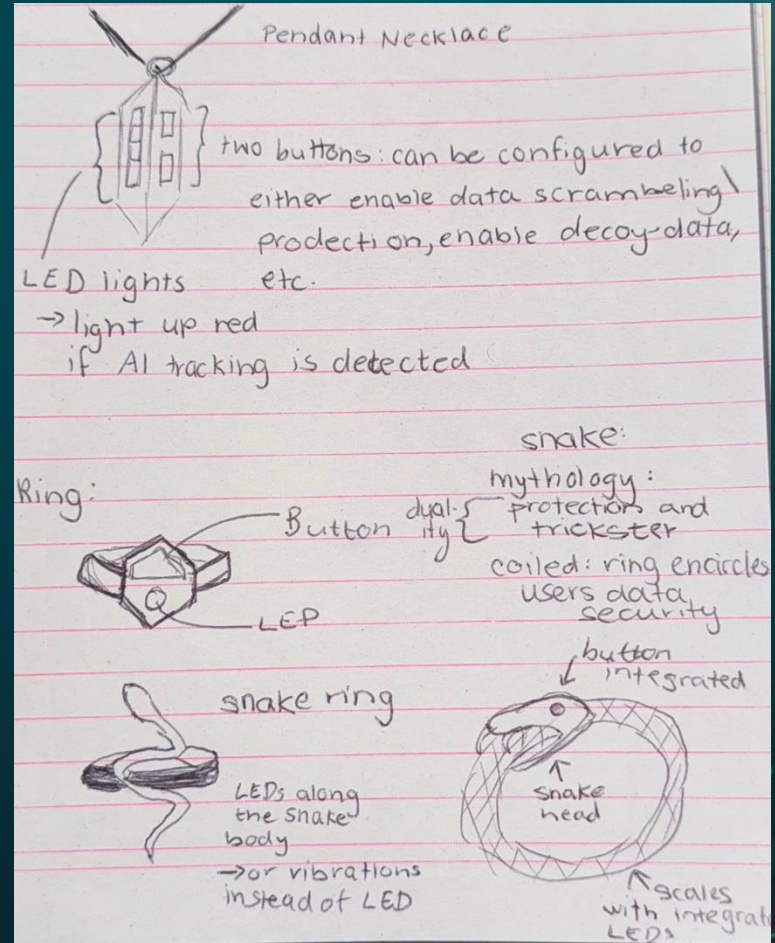 Pendant Necklace
two buttons: can be configured to
either enable data scrambeling\
prodection, enable decoy-data,
etc.
LED lights
→ light up red
if AI tracking is detected
snake:
mythology:
dual-
ity
protection and
trickster
coiled: ring encircles
users data
security
Ring:
Button
LED
button
integrated
snake ring
LEDs along
the snake
body
→ or vibrations
instead of LED
snake
head
scales
with integrat
LEDs